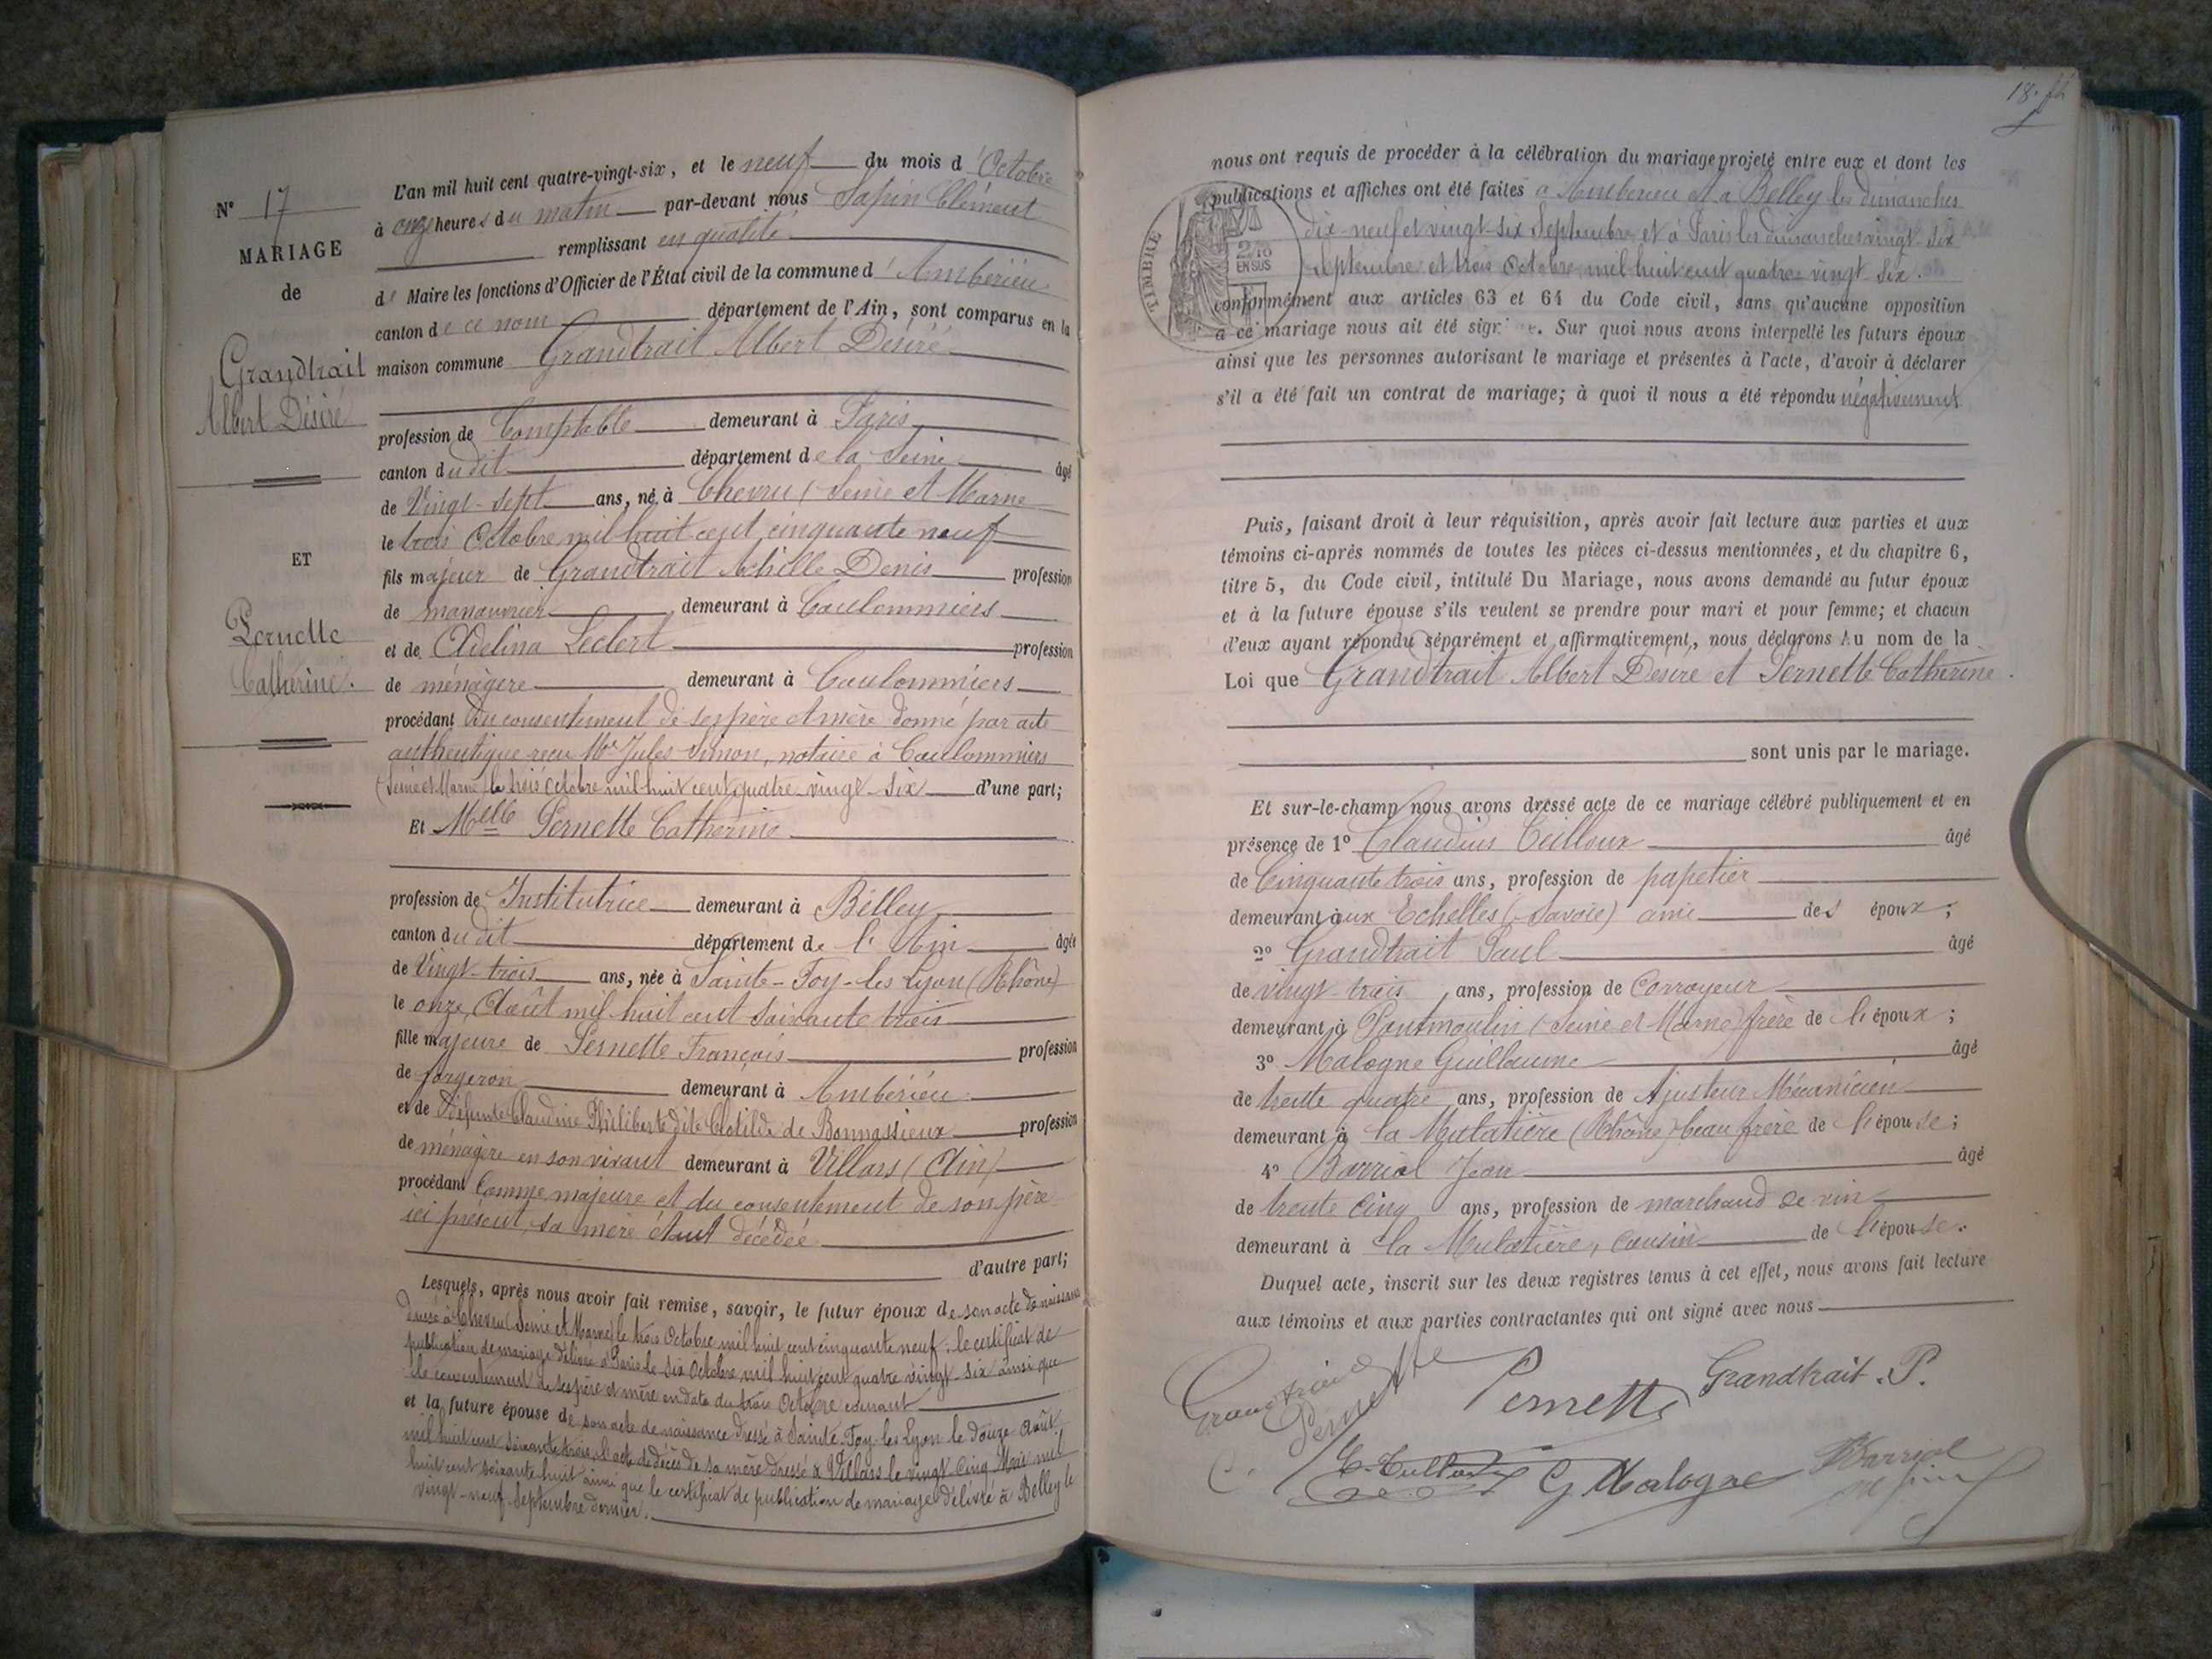 N° 17
MARIAGE
de
Grandtrait
Albert Désiré
ET
Pernette
Catherine.
L'an mil huit cent quatre-vingt-six, et le neuf du mois d'Octobre
à onze heures du matin par-devant nous Sapin Clément
remplissant en qualité
de Maire les fonctions d'Officier de l'État civil de la commune d'Ambérieu
canton de ce nom département de l'Ain, sont comparus en la
maison commune Grandtrait Albert Désiré
profession de Comptable demeurant à Paris
canton dudit département de la Seine âgé
de Vingt-sept ans, né à Chevru (Seine et Marne
le trois Octobre mil huit cent cinquante neuf
fils majeur de Grandtrait Achille Denis profession
de manouvrier demeurant à Coulommiers
et de Adelina Leclert profession
de ménagère demeurant à Coulommiers
procédant du consentement de ses père et mère donné par acte
authentique reçu Mr Jules Simon, notaire à Coulommiers
(Seine et Marne) le trois Octobre mil huit cent quatre-vingt-six d'une part;
Et Melle Pernette Catherine
profession de Institutrice demeurant à Belley
canton dudit département de l'Ain âgée
de Vingt-trois ans, née à Sainte-Foy-les Lyon (Rhône)
le onze Août mil huit cent soixante trois
fille majeure de Pernette François profession
de forgeron demeurant à Ambérieu
et de défunte Claudine Philiberte dite Clotilde de Bonnassieux profession
de ménagère en son vivant demeurant à Villars (Ain)
procédant comme majeure et du consentement de son père
ici présent, sa mère étant décédée
d'autre part;
Lesquels, après nous avoir fait remise, savoir, le futur époux de son acte de naissance
dressé à Chevru (Seine et Marne) le trois Octobre mil huit cent cinquante neuf; le certificat de
publication de mariage délivré à Paris le six Octobre mil huit cent quatre vingt-six ainsi que
le consentement de ses père et mère en date du trois Octobre courant
et la future épouse de son acte de naissance dressé à Sainte-Foy-les-Lyon le douze Août
mil huit cent soixante trois, l'acte de décès de sa mère dressé à Villars le vingt-cinq Mai mil
huit cent soixante huit ainsi que le certificat de publication de mariage délivré à Belley le
vingt-neuf Septembre dernier.
18.
nous ont requis de procéder à la célébration du mariage projeté entre eux et dont les
publications et affiches ont été faites à Ambérieu et à Belley les dimanches
dix-neuf et vingt-six Septembre et à Paris les dimanches vingt-six
Septembre et trois Octobre mil huit cent quatre vingt six.
TIMBRE
2/10
EN SUS
conformément aux articles 63 et 64 du Code civil, sans qu'aucune opposition
à ce mariage nous ait été signifiée. Sur quoi nous avons interpellé les futurs époux
ainsi que les personnes autorisant le mariage et présentes à l'acte, d'avoir à déclarer
s'il a été fait un contrat de mariage; à quoi il nous a été répondu négativement
Puis, faisant droit à leur réquisition, après avoir fait lecture aux parties et aux
témoins ci-après nommés de toutes les pièces ci-dessus mentionnées, et du chapitre 6,
titre 5, du Code civil, intitulé Du Mariage, nous avons demandé au futur époux
et à la future épouse s'ils veulent se prendre pour mari et pour femme; et chacun
d'eux ayant répondu séparément et affirmativement, nous déclarons Au nom de la
Loi que Grandtrait Albert Désiré et Pernette Catherine.
sont unis par le mariage.
Et sur-le-champ nous avons dressé acte de ce mariage célébré publiquement et en
présence de 1° Claudius Teilloux âgé
de Cinquante trois ans, profession de papetier
demeurant aux Echelles (Savoie) ami des époux;
2° Grandtrait Paul âgé
de vingt-trois ans, profession de Corroyeur
demeurant à Pontmoulin (Seine et Marne) frère de l'époux;
3° Malogne Guillaume âgé
de trente quatre ans, profession de Ajusteur Mécanicien
demeurant à la Mulatière (Rhône) beau frère de l'épouse;
4° Barriol Jean âgé
de trente cinq ans, profession de marchand de vin
demeurant à la Mulatière, cousin de l'épouse.
Duquel acte, inscrit sur les deux registres tenus à cet effet, nous avons fait lecture
aux témoins et aux parties contractantes qui ont signé avec nous
Grandtrait
C. Pernette
Pernette
Grandtrait. P.
G Malogne
Barriol
Sapin